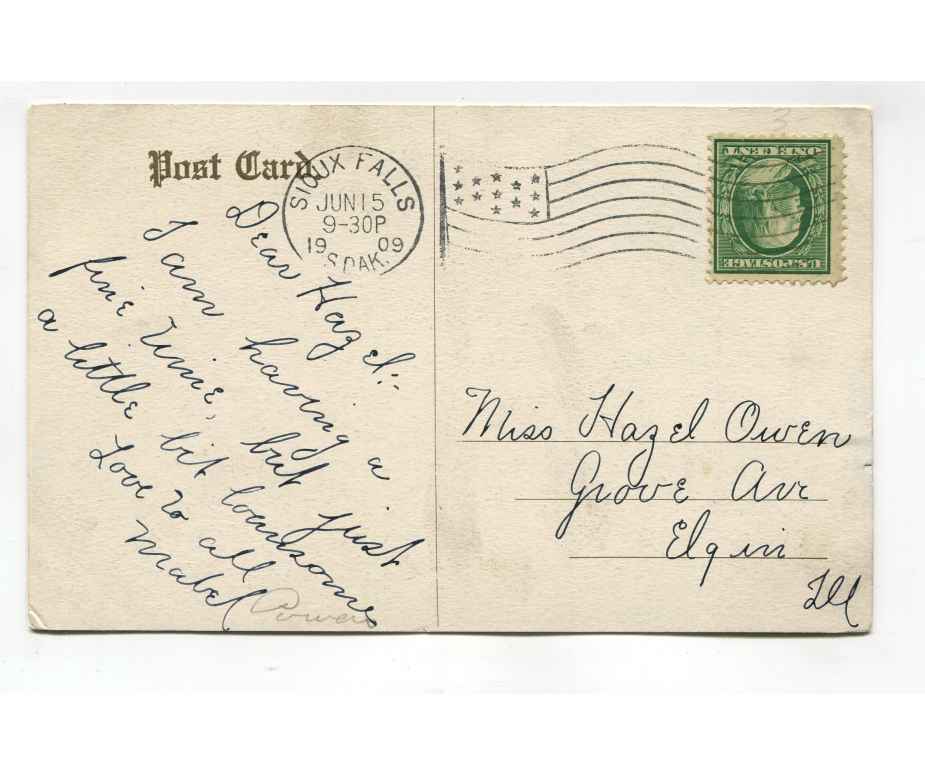 Post Card
SIOUX FALLS
JUN 15
9-30P
19 09
S.DAK.
ONE CENT
U.S. POSTAGE
Dear Hazel:-
I am having a
fine time, but just
a little bit lonesome
Love to all
Mabel
Powers
Miss Hazel Owen
Grove Ave
Elgin
Ill
3